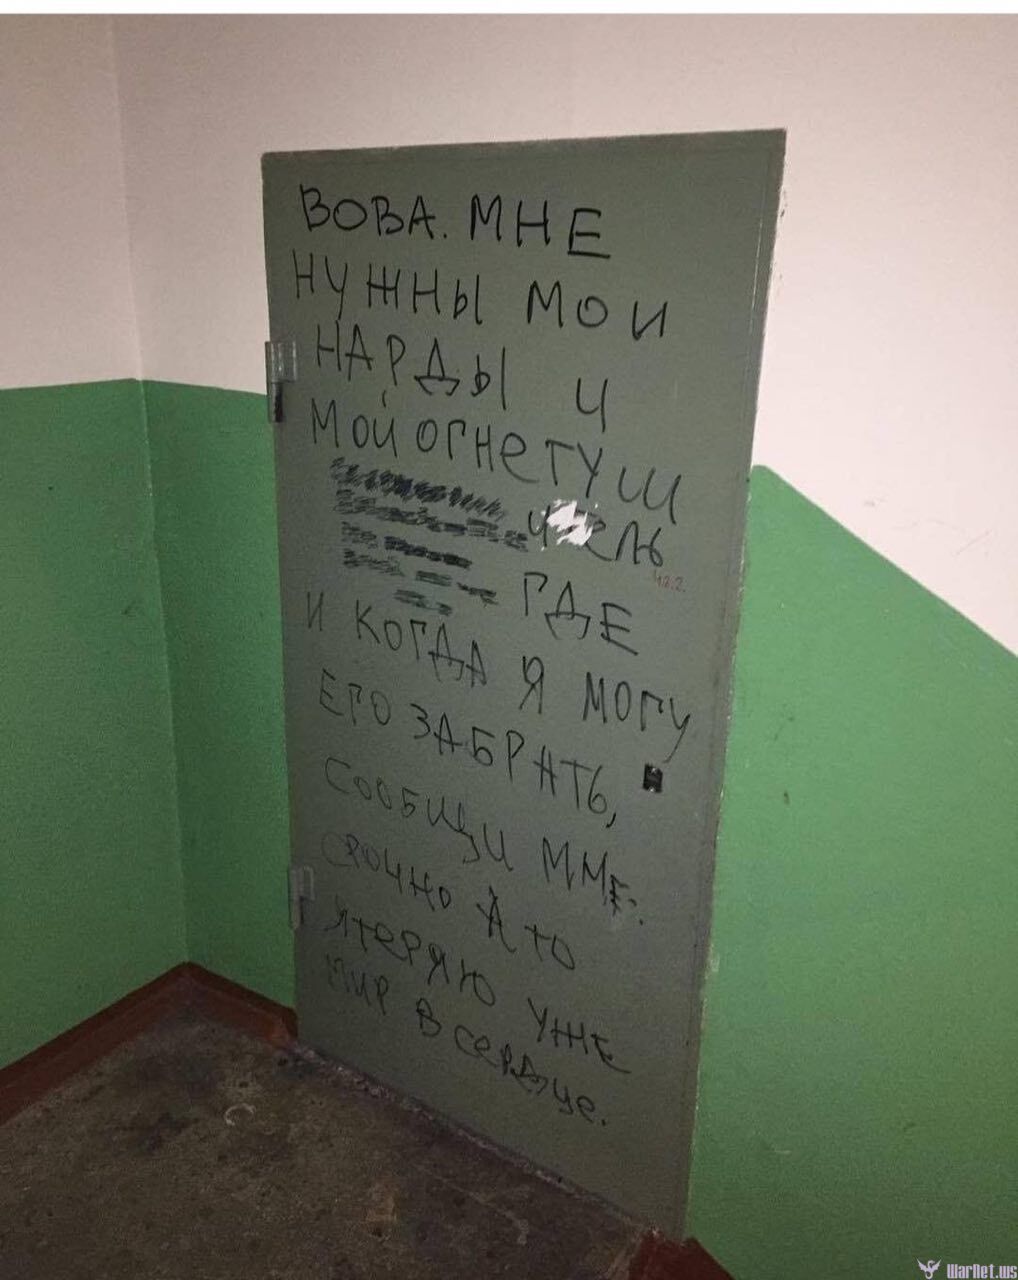 ВОВА. МНЕ
НУЖНЫ МОИ
НАРДЫ И
МОЙ ОГНЕТУШ
ИТЕЛЬ
4.2.2.
ГДЕ
И КОГДА Я МОГУ
ЕГО ЗАБРАТЬ,
СООБЩИ МНЕ.
СРОЧНО А ТО
Я ТЕРЯЮ УЖЕ
МИР В СЕРДЦЕ.
WarNet.ws